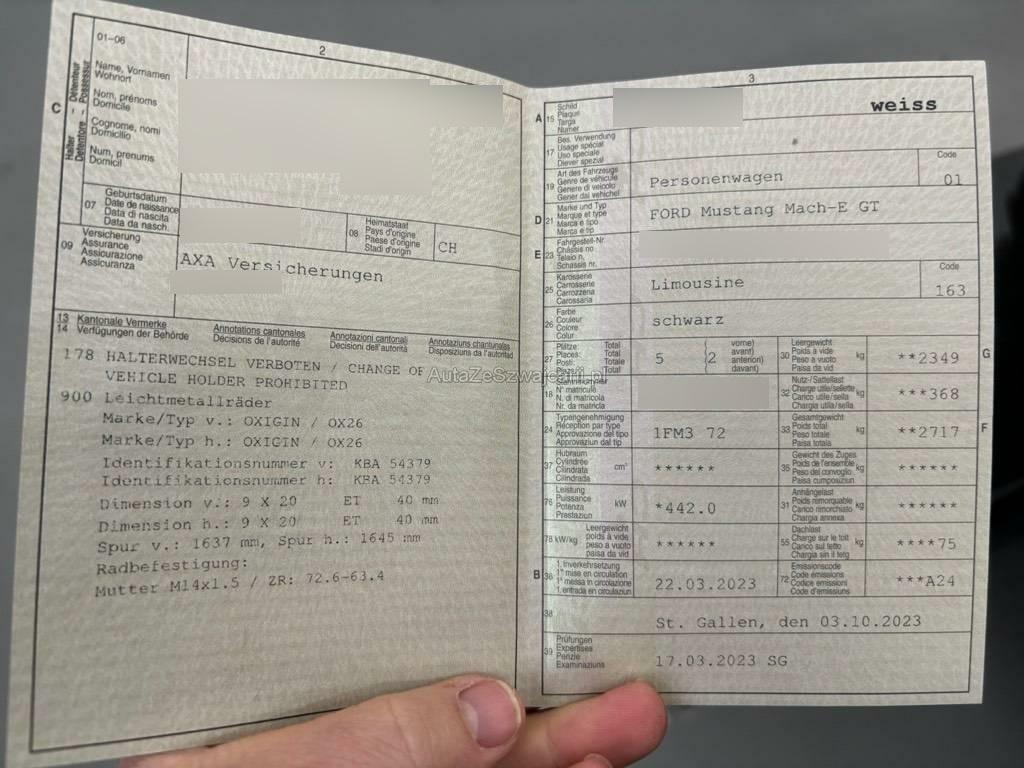 2
01-06
C
Halter
Détenteur
Detentore
Possessur
Name, Vornamen
Wohnort
Nom, prénoms
Domicile
Cognome, nomi
Domicilio
Num, prenums
Domicil
07
Geburtsdatum
Date de naissance
Data di nascita
Data da nasch.
08
Heimatstaat
Pays d'origine
Paese d'origine
Stadi d'origin
CH
09
Versicherung
Assurance
Assicurazione
Assicuranza
AXA Versicherungen
13 Kantonale Vermerke Annotations cantonales Annotazioni cantonali Annotaziuns chantunalas
14 Verfügungen der Behörde Décisions de l'autorité Decisioni dell'autorità Disposiziuns da l'autoritad
178 HALTERWECHSEL VERBOTEN / CHANGE OF
VEHICLE HOLDER PROHIBITED
900 Leichtmetallräder
Marke/Typ v.: OXIGIN / OX26
Marke/Typ h.: OXIGIN / OX26
Identifikationsnummer v: KBA 54379
Identifikationsnummer h: KBA 54379
Dimension v.: 9 X 20 ET 40 mm
Dimension h.: 9 X 20 ET 40 mm
Spur v.: 1637 mm, Spur h.: 1645 mm
Radbefestigung:
Mutter M14x1.5 / ZR: 72.6-63.4
AutaZeSzwajcarii.pl
3
A 15
Schild
Plaque
Targa
Numer
weiss
17
Bes. Verwendung
Usage spécial
Uso speciale
Diever spezial
*
19
Art des Fahrzeugs
Genre de véhicule
Genere di veicolo
Gener dal vehichel
Personenwagen
Code
01
D 21
Marke und Typ
Marque et type
Marca e tipo
Marca e tip
FORD Mustang Mach-E GT
E 23
Fahrgestell-Nr.
Châssis no
Telaio n.
Schassis nr.
25
Karosserie
Carrosserie
Carrozzeria
Carossaria
Limousine
Code
163
26
Farbe
Couleur
Colore
Colur
schwarz
27
Plätze: Total
Places: Total
Posti: Totale
Plazs: Total
5
(2
vorne)
avant)
anteriori)
davant)
30
Leergewicht
Poids à vide
Peso a vuoto
Paisa da vid
kg
**2349
G
18
Stammnummer
N° matricule
N. di matricola
Nr. da matricla
32
Nutz-/Sattellast
Charge utile/sellette
Carico utile/sella
Chargia utila/sella
kg
***368
24
Typengenehmigung
Réception par type
Approvazione del tipo
Approvaziun dal tip
1FM3 72
33
Gesamtgewicht
Poids total
Peso totale
Paisa totala
kg
**2717
F
37
Hubraum
Cylindrée
Cilindrata
Cilindrada
cm³
******
35
Gewicht des Zuges
Poids de l'ensemble
Peso del convoglio
Paisa cumposiziun
kg
******
76
Leistung
Puissance
Potenza
Prestaziun
kW
*442.0
31
Anhängelast
Poids remorquable
Carico rimorchiato
Chargia annexa
kg
******
78 kW/kg
Leergewicht
poids à vide
peso a vuoto
paisa da vid
******
55
Dachlast
Charge sur le toit
Carico sul tetto
Chargia sin il tetg
kg
****75
B 36
1. Inverkehrsetzung
1re mise en circulation
1a messa in circolazione
1. entrada en circulaziun
22.03.2023
72
Emissionscode
Code émissions
Codice emissioni
Code d'emissiuns
***A24
38
St. Gallen, den 03.10.2023
39
Prüfungen
Expertises
Perizie
Examinaziuns
17.03.2023 SG